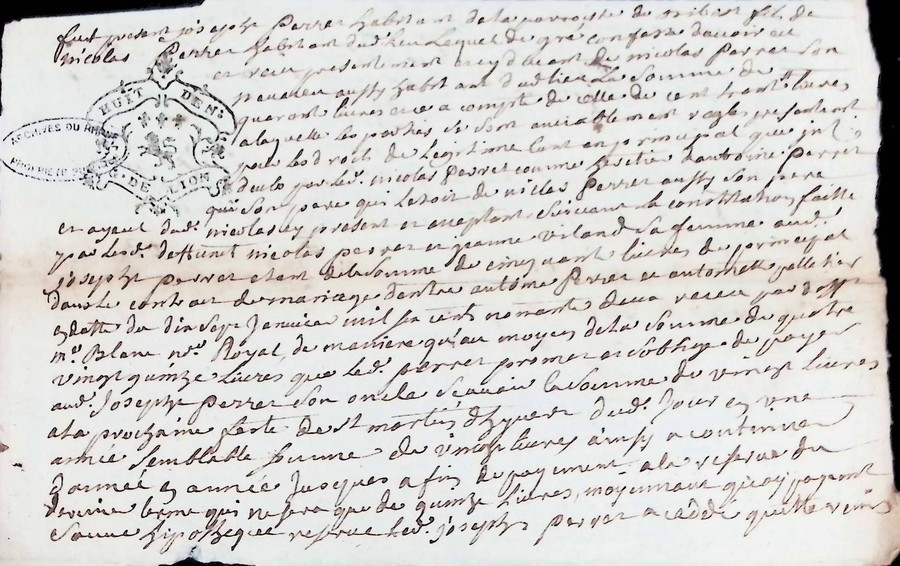 fut present joseph Perret habitant de la parroisse de fils de
nicolas Perret habitant dud. lieu Lequel de gré confesse d'avoir eu
et receu presentement de nicolas Perret son
nepveu aussy habitant dud. lieu La somme de
quarante livres et ce a compte de celle de cent trante livres
a laquelle les parties se sont amiablement reglés presentement
pour les droits de Legitime tant en principal que
deubs par led. nicolas Perret comme heritier d'antoine Perret
son pere qui letoit de nicolas Perret aussy son pere
et ayeul dud. nicolas icy present et acceptant suivant la constitution faitte
par led. deffunct nicolas perret et jeanne viland sa femme aud.
joseph perret etant de la somme de cinquante livres de principal
dans le contrat de mariage d'entre antoine Perret et antoinette pelletier
en datte du dix sept Janvier mil six cents nonante deux receu par deffunt
me. Blanc nore. Royal, de maniere qu'au moyen de la somme de quatre
vingt quinze livres que led. perret promet et s'oblige de payer
aud. Joseph Perret son oncle scavoir la somme de vingt livres
a la prochaine feste de st martin d'hyvert dud. Jour en une
année semblable somme de vingt livres ainsy a continuer
d'année en année jusques a fin de payement a la reserve du
dernier terme qui ne sera que de quinze livres, moyennant quoy
sauve hipotheque reserve led. joseph perret a cedde quitte remis
HUIT DENS.
G. DE LION
ARCHIVES DU RHONE
PROPRIETE PUBLIQUE